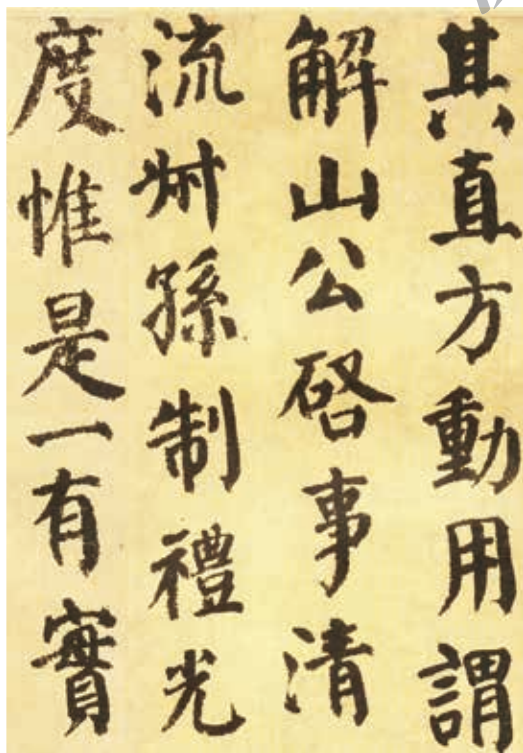 其直方動用謂
解山公啓事清
流叔孫制禮光
度惟是一有實